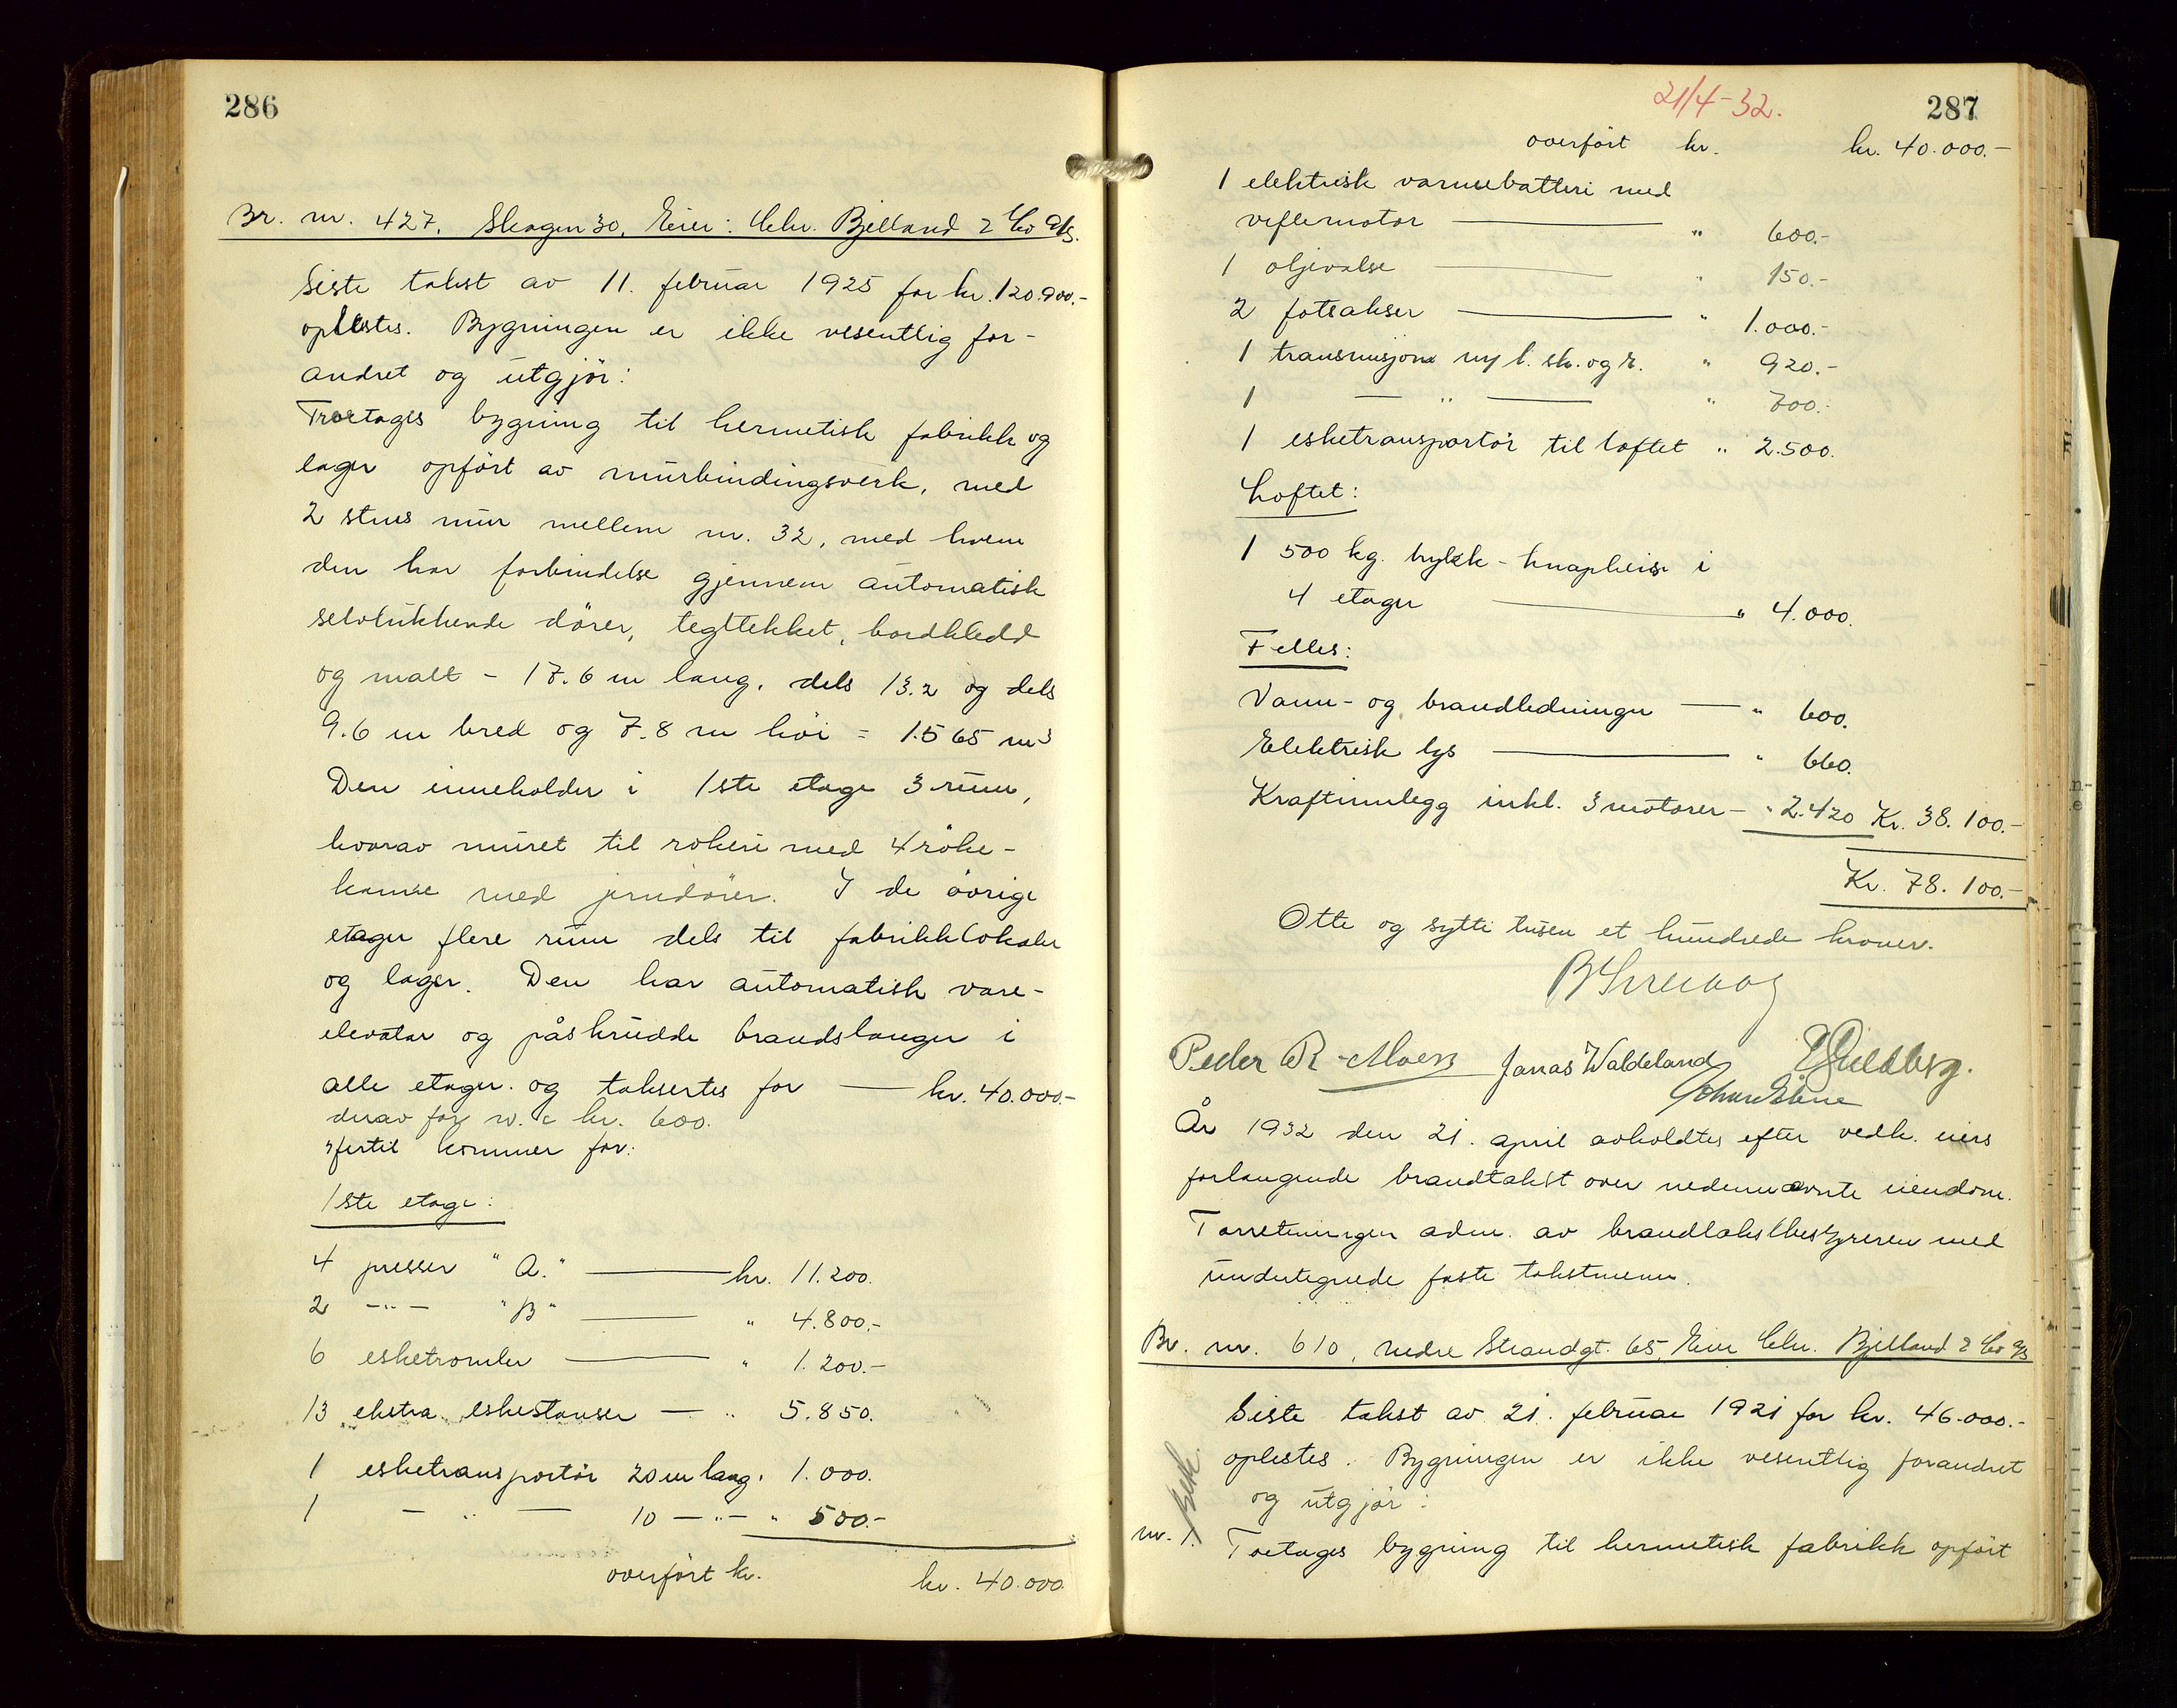 286
Br. nr. 427. Skagen 30. Eier: Chr. Bjelland & Co A/s.
Siste takst av 11. februar 1925 for kr. 120.900.-
oplestes. Bygningen er ikke vesentlig for-
andret og utgjör:
Treetages bygning til hermetisk fabrikk og
lager opfört av murbindingsverk, med
2 stens mur mellem nr. 32, med hvem
den har forbindelse gjennem automatisk
selvlukkende dörer, tegltekket, bordkledd
og malt - 17.6 m lang, dels 13.2 og dels
9.6 m bred og 7.8 m höi = 1.565 m³
Den inneholder i 1ste etage 3 rum,
hvorav muret til rökeri med 4 röke-
kamre med jerndörer. I de övrige
etager flere rum dels til fabrikklokaler
og lager. Den har automatisk vare-
elevator og påskrudde brandslanger i
alle etager. og takseres for — kr. 40.000.-
derav for w.c kr. 600.
Hertil kommer for:
1ste etage:
4 presser "A." — kr. 11.200.
2 -"- "B" — " 4.800.-
6 esketromler — " 1.200.-
13 ekstra eskestanser — " 5.850.
1 esketransportör 20 m lang " 1.000.
1 — " — 10 —"— " 500.-
overfört kr. kr. 40.000
21/4-32.
287
overfört kr. kr. 40.000.-
1 elektrisk varmebatteri med
viftemotor — " 600.-
1 oljevalse — " 150.-
2 fotsakser — " 1.000.-
1 transmisjon ny l. sk. og r. " 920.-
1 — " — " 700.-
1 esketransportör til loftet " 2.500.
Loftet:
1 500 kg. trykk-knapheis i
4 etager — " 4.000.
Felles:
Vann- og brandledninger — " 600.
Elektrisk lys — " 660.
Kraftinnlegg inkl. 3 motorer — " 2.420 Kr. 38.100.-
Kr. 78.100.-
Otte og sytti tusen et hundrede kroner.
Peder R. Moen Jonas Waldeland
År 1932 den 21. april avholdtes efter vedk. eiers
forlangende brandtakst over nedennævnte eiendom.
Forretningen adm. av brandtakstbestyreren med
undertegnede faste takstmenn.
Br. nr. 610, nedre Strandgt. 65, Eier Chr. Bjelland & Co A/s
Siste takst av 21. februar 1921 for kr. 46.000.-
oplestes. Bygningen er ikke vesentlig forandret
og utgjör:
nr. 1. Toetages bygning til hermetisk fabrikk opfört